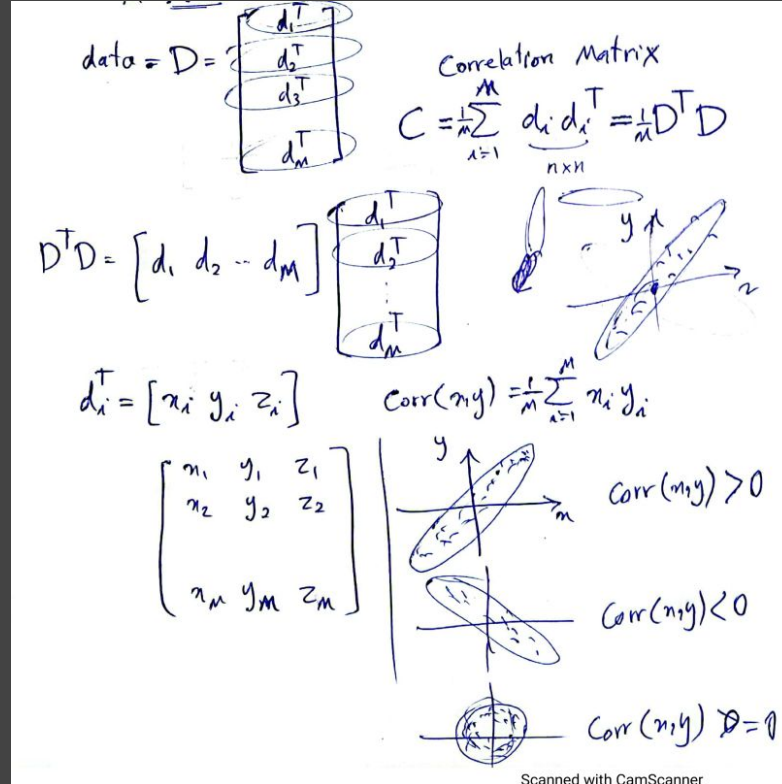 data = D = [d₁ᵀ d₂ᵀ d₃ᵀ dₘᵀ]
Correlation Matrix
C = 1/M ∑ᵢ₌₁ᴹ dᵢ dᵢᵀ = 1/M DᵀD
n×n
DᵀD = [d₁ d₂ -- d_M] [d₁ᵀ d₂ᵀ ⋮ d_Mᵀ]
y
x
dᵢᵀ = [xᵢ yᵢ zᵢ]
Corr(x,y) = 1/M ∑ᵢ₌₁ᴹ xᵢ yᵢ
x₁ y₁ z₁
x₂ y₂ z₂
x_M y_M z_M
y
x
Corr(x,y) > 0
Corr(x,y) < 0
Corr(x,y) = 0
Scanned with CamScanner